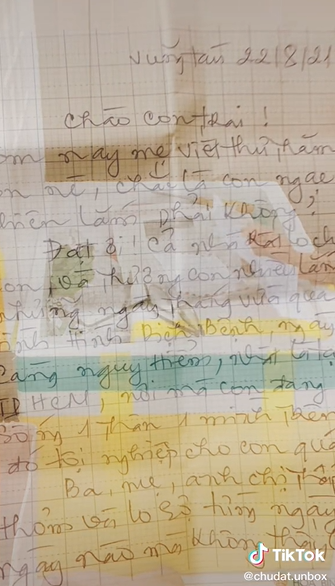 Vũng tàu 22/8/21
Chào con trai !
nay mẹ viết thư thăm
con nè, chắc là con ngạc
nhiên lắm phải không?
Đạt ơi! cả nhà
con, và thương con nhiều lắm
những ngày tháng vừa qua
tình Dịch Bệnh ngày
càng nguy hiểm, nhất là tại
TP HCM, nơi mà con đang
sống 1 thân 1 mình
đó tội nghiệp cho con quá
Ba, mẹ, anh chị
và lo sợ từng ngày
ngày nào mà không
TikTok
@chudat.unbox